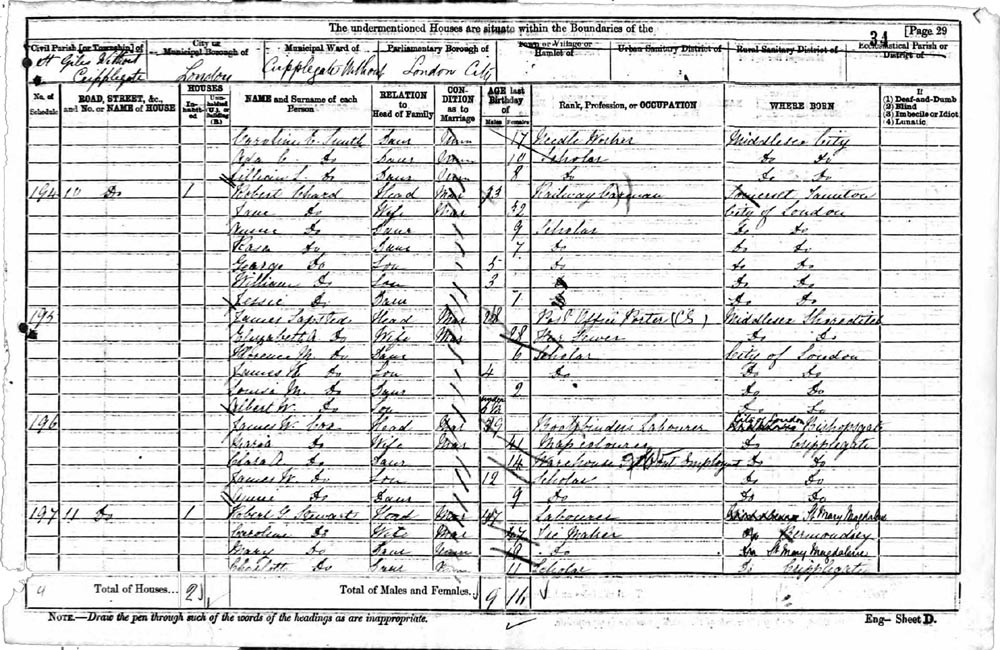 The undermentioned Houses are situate within the Boundaries of the
34 [Page 29
Civil Parish [or Township] of
City or Municipal Borough of
Municipal Ward of
Parliamentary Borough of
Town or Village or Hamlet of
Urban Sanitary District of
Rural Sanitary District of
Ecclesiastical Parish or District of
St Giles Without Cripplegate
London
Cripplegate Without
London City
No. of Schedule
ROAD, STREET, &c., and No. or NAME of HOUSE
HOUSES
Inhabited
Uninhabited (U.), or Building (B.)
NAME and Surname of each Person
RELATION to Head of Family
CONDITION as to Marriage
AGE last Birthday of
Males Females
Rank, Profession, or OCCUPATION
WHERE BORN
If
(1) Deaf-and-Dumb
(2) Blind
(3) Imbecile or Idiot
(4) Lunatic
Caroline E. Smith Daur Unm 17 Needle Worker Middlesex City
Ada C. Do Daur Unm 10 Scholar Do Do
Lillian L. Do Daur Unm 8 Do Do Do
194 10 Do 1 Robert Chard Head Mar 33 Railway Carman Somerset Taunton
Jane Do Wife Mar 32 City of London
Annie Do Daur 9 Scholar Do Do
Rosa Do Daur 7 Do Do Do
George Do Son 5 Do Do Do
William Do Son 3 Do Do
Jessie Do Daur 1 Do Do
195 James Head Mar 28 Office Porter Middlesex Shoreditch
Elizabeth A Do Wife Mar 28 Fur Sewer Do Do
Florence M. Do Daur 6 Scholar City of London
James Do Son 4 Do Do Do
Louisa M. Do Daur 2 Do Do
Albert W. Do Son Do Do
196 James W. Cox Head Mar 39 Bookbinders Labourer City of London Bishopsgate
Maria Do Wife Mar 41 Map colourer Do Cripplegate
Clara Do Daur 14 Warehouse Do Do
James W. Do Son 12 Scholar Do Do
Annie Do Daur 9 Do Do Do
197 11 Do 1 Robert G. Stewart Head Mar 47 Labourer St Mary Magdalene
Caroline Do Wife Mar 47 Tie Maker Bermondsey
Mary Do Daur Unm Do St Mary Magdalene
Charlott Do Daur Unm 11 Scholar Do Cripplegate
4 Total of Houses... 2 Total of Males and Females... 9 16
NOTE.—Draw the pen through such of the words of the headings as are inappropriate.
Eng— Sheet D.